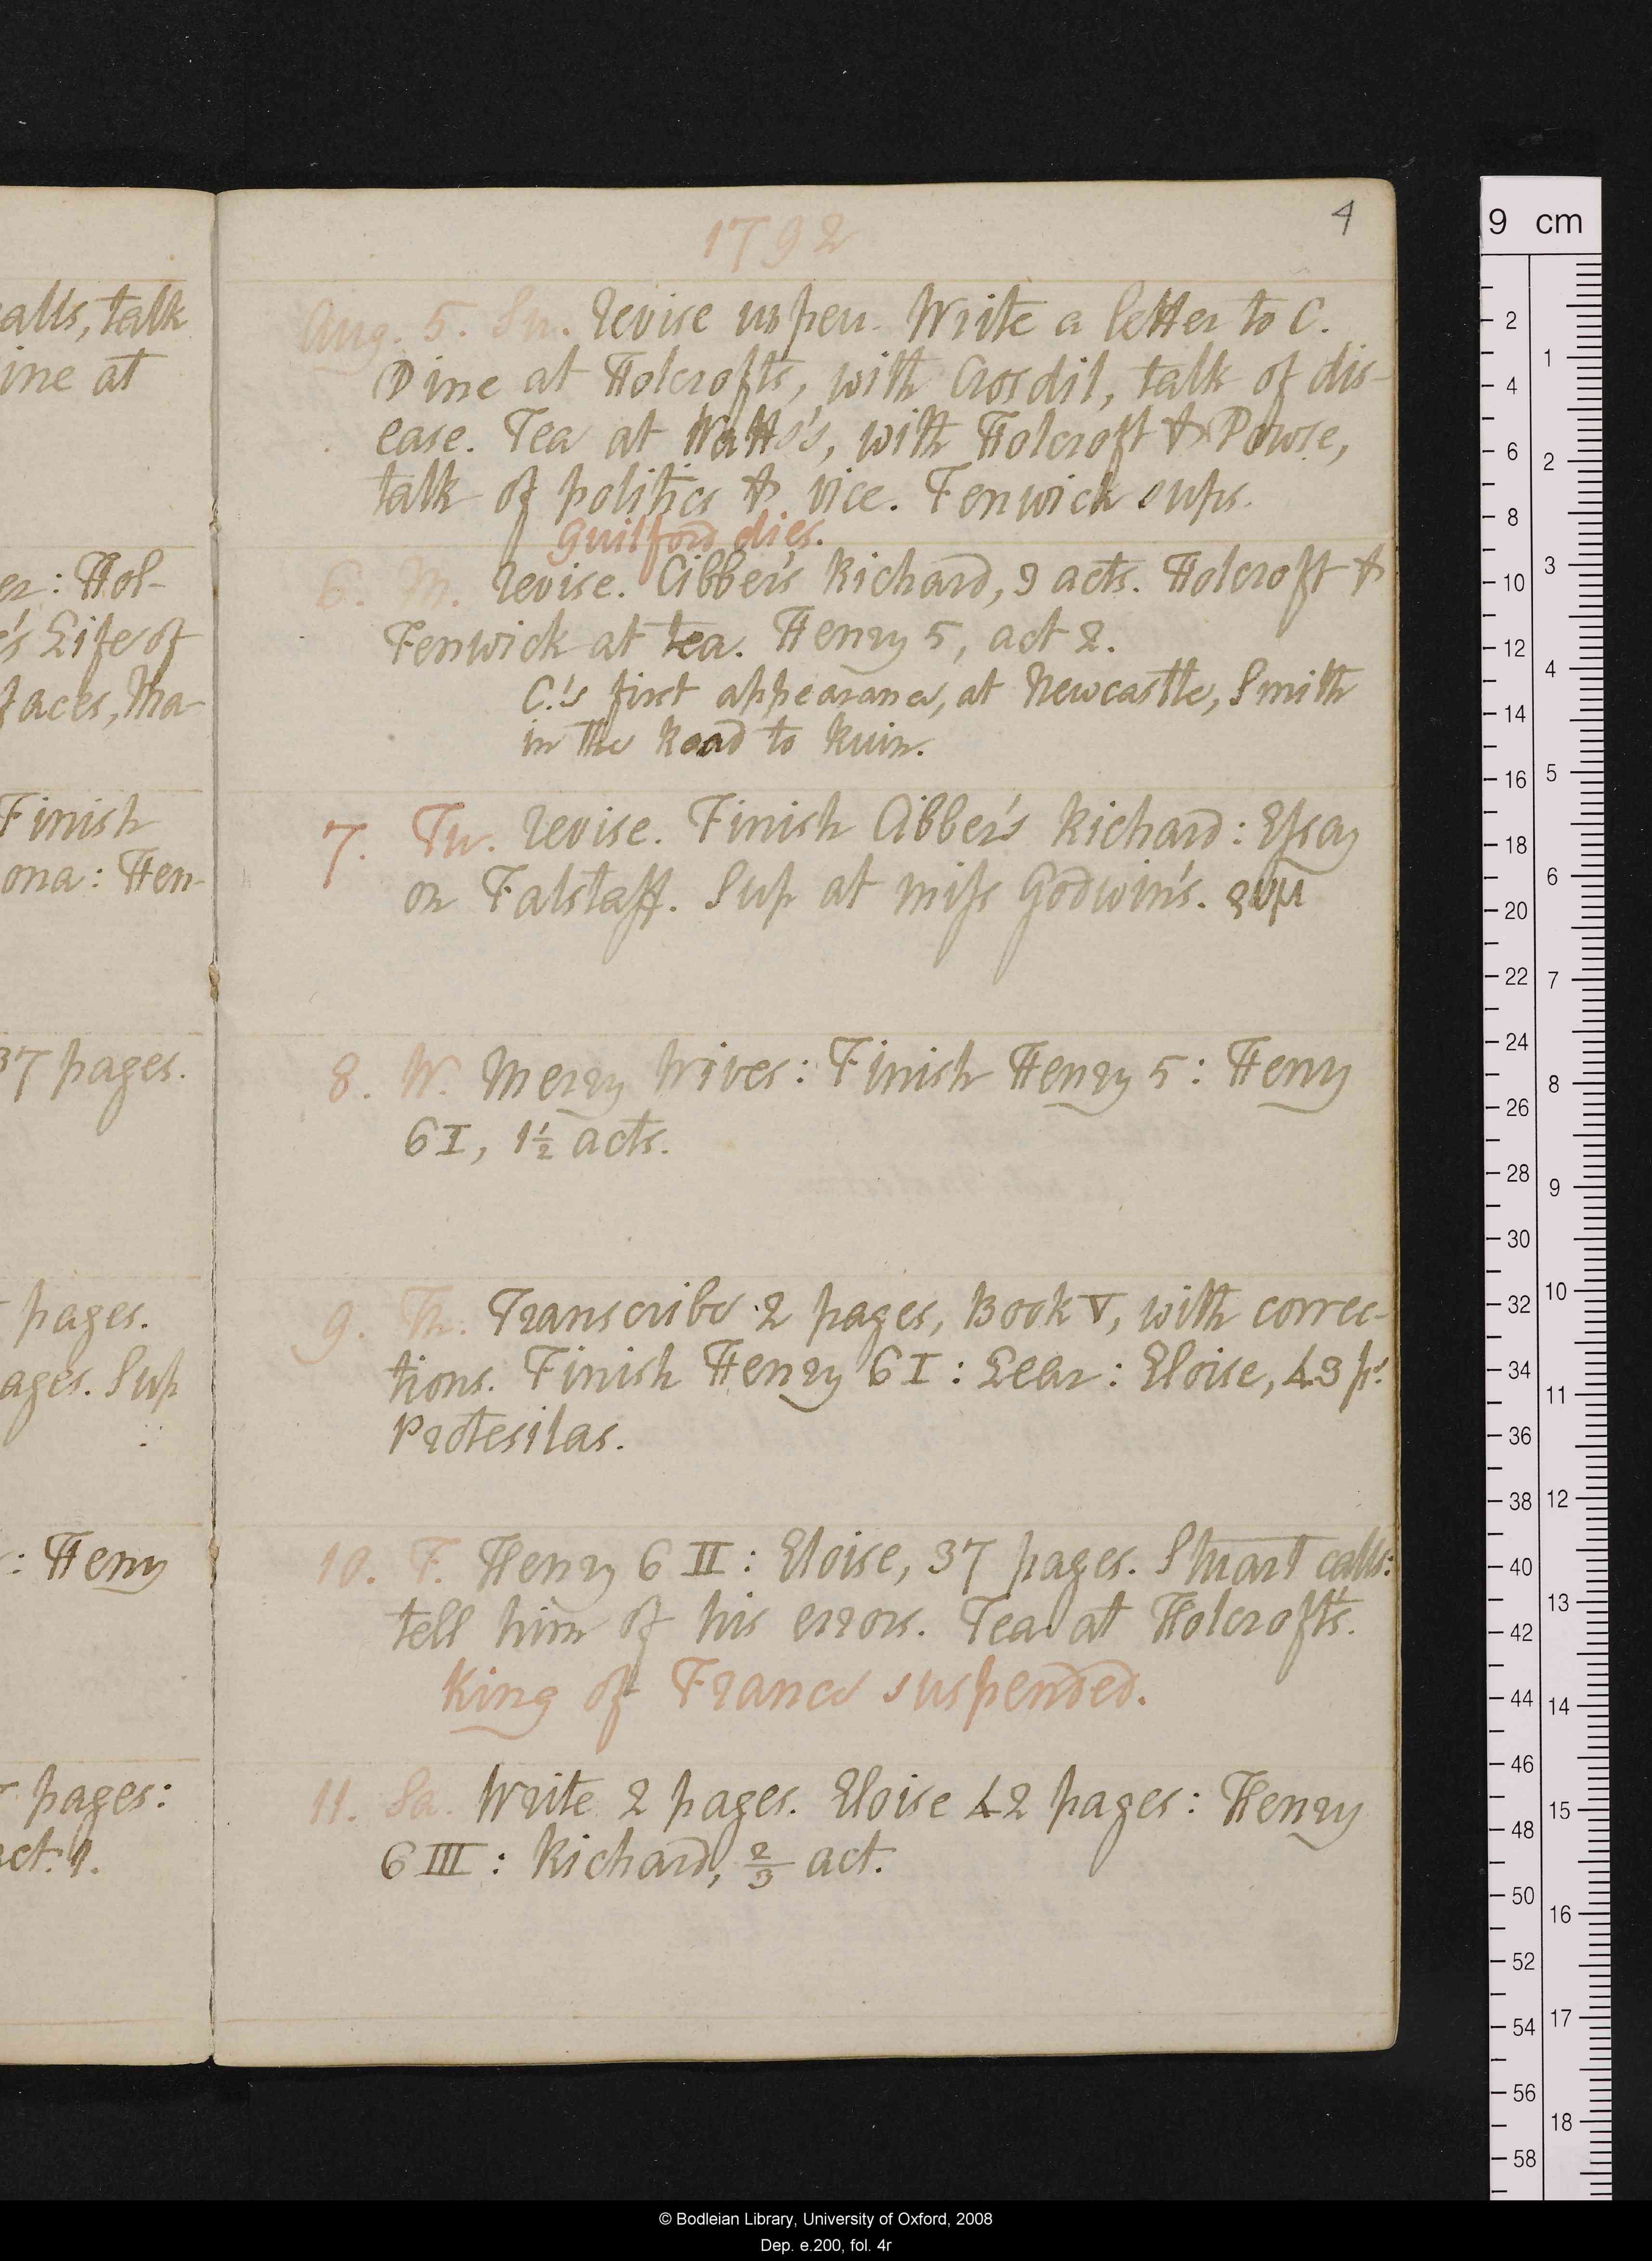 alls, talk
ine at
er: Hol-
's Life of
faces, Tha-
Finish
ona: Hen-
37 pages.
pages.
ages. Sup
: Henry
pages:
act. 1.
1792
4
Aug. 5. Su. Revise. Write a letter to C.
Dine at Holcroft's, with Crosdil, talk of dis-
ease. Tea at Watts's, with Holcroft & Dowse,
talk of politics & vice. Fenwick sups.
Guilford dies.
6. M. Revise. Cibber's Richard, 3 acts. Holcroft &
Fenwick at tea. Henry 5, act 2.
C.'s first appearance, at Newcastle, Smith
in the Road to Ruin.
7. Tu. Revise. Finish Cibber's Richard: Essay
on Falstaff. Sup at miss Godwin's.
8. W. Merry Wives: Finish Henry 5: Henry
6 I, 1½ acts.
9. Th. Transcribe 2 pages, Book V, with correc-
tions. Finish Henry 6 I: Lear: Eloise, 43 ps.
Protesilas.
10. F. Henry 6 II: Eloise, 37 pages. Stuart calls:
tell him of his errors. Tea at Holcroft's.
King of France suspended.
11. Sa. Write 2 pages. Eloise 42 pages: Henry
6 III: Richard, 2/3 act.
9 cm
2
4
6
8
10
12
14
16
18
20
22
24
26
28
30
32
34
36
38
40
42
44
46
48
50
52
54
56
58
1
2
3
4
5
6
7
8
9
10
11
12
13
14
15
16
17
18
© Bodleian Library, University of Oxford, 2008
Dep. e.200, fol. 4r